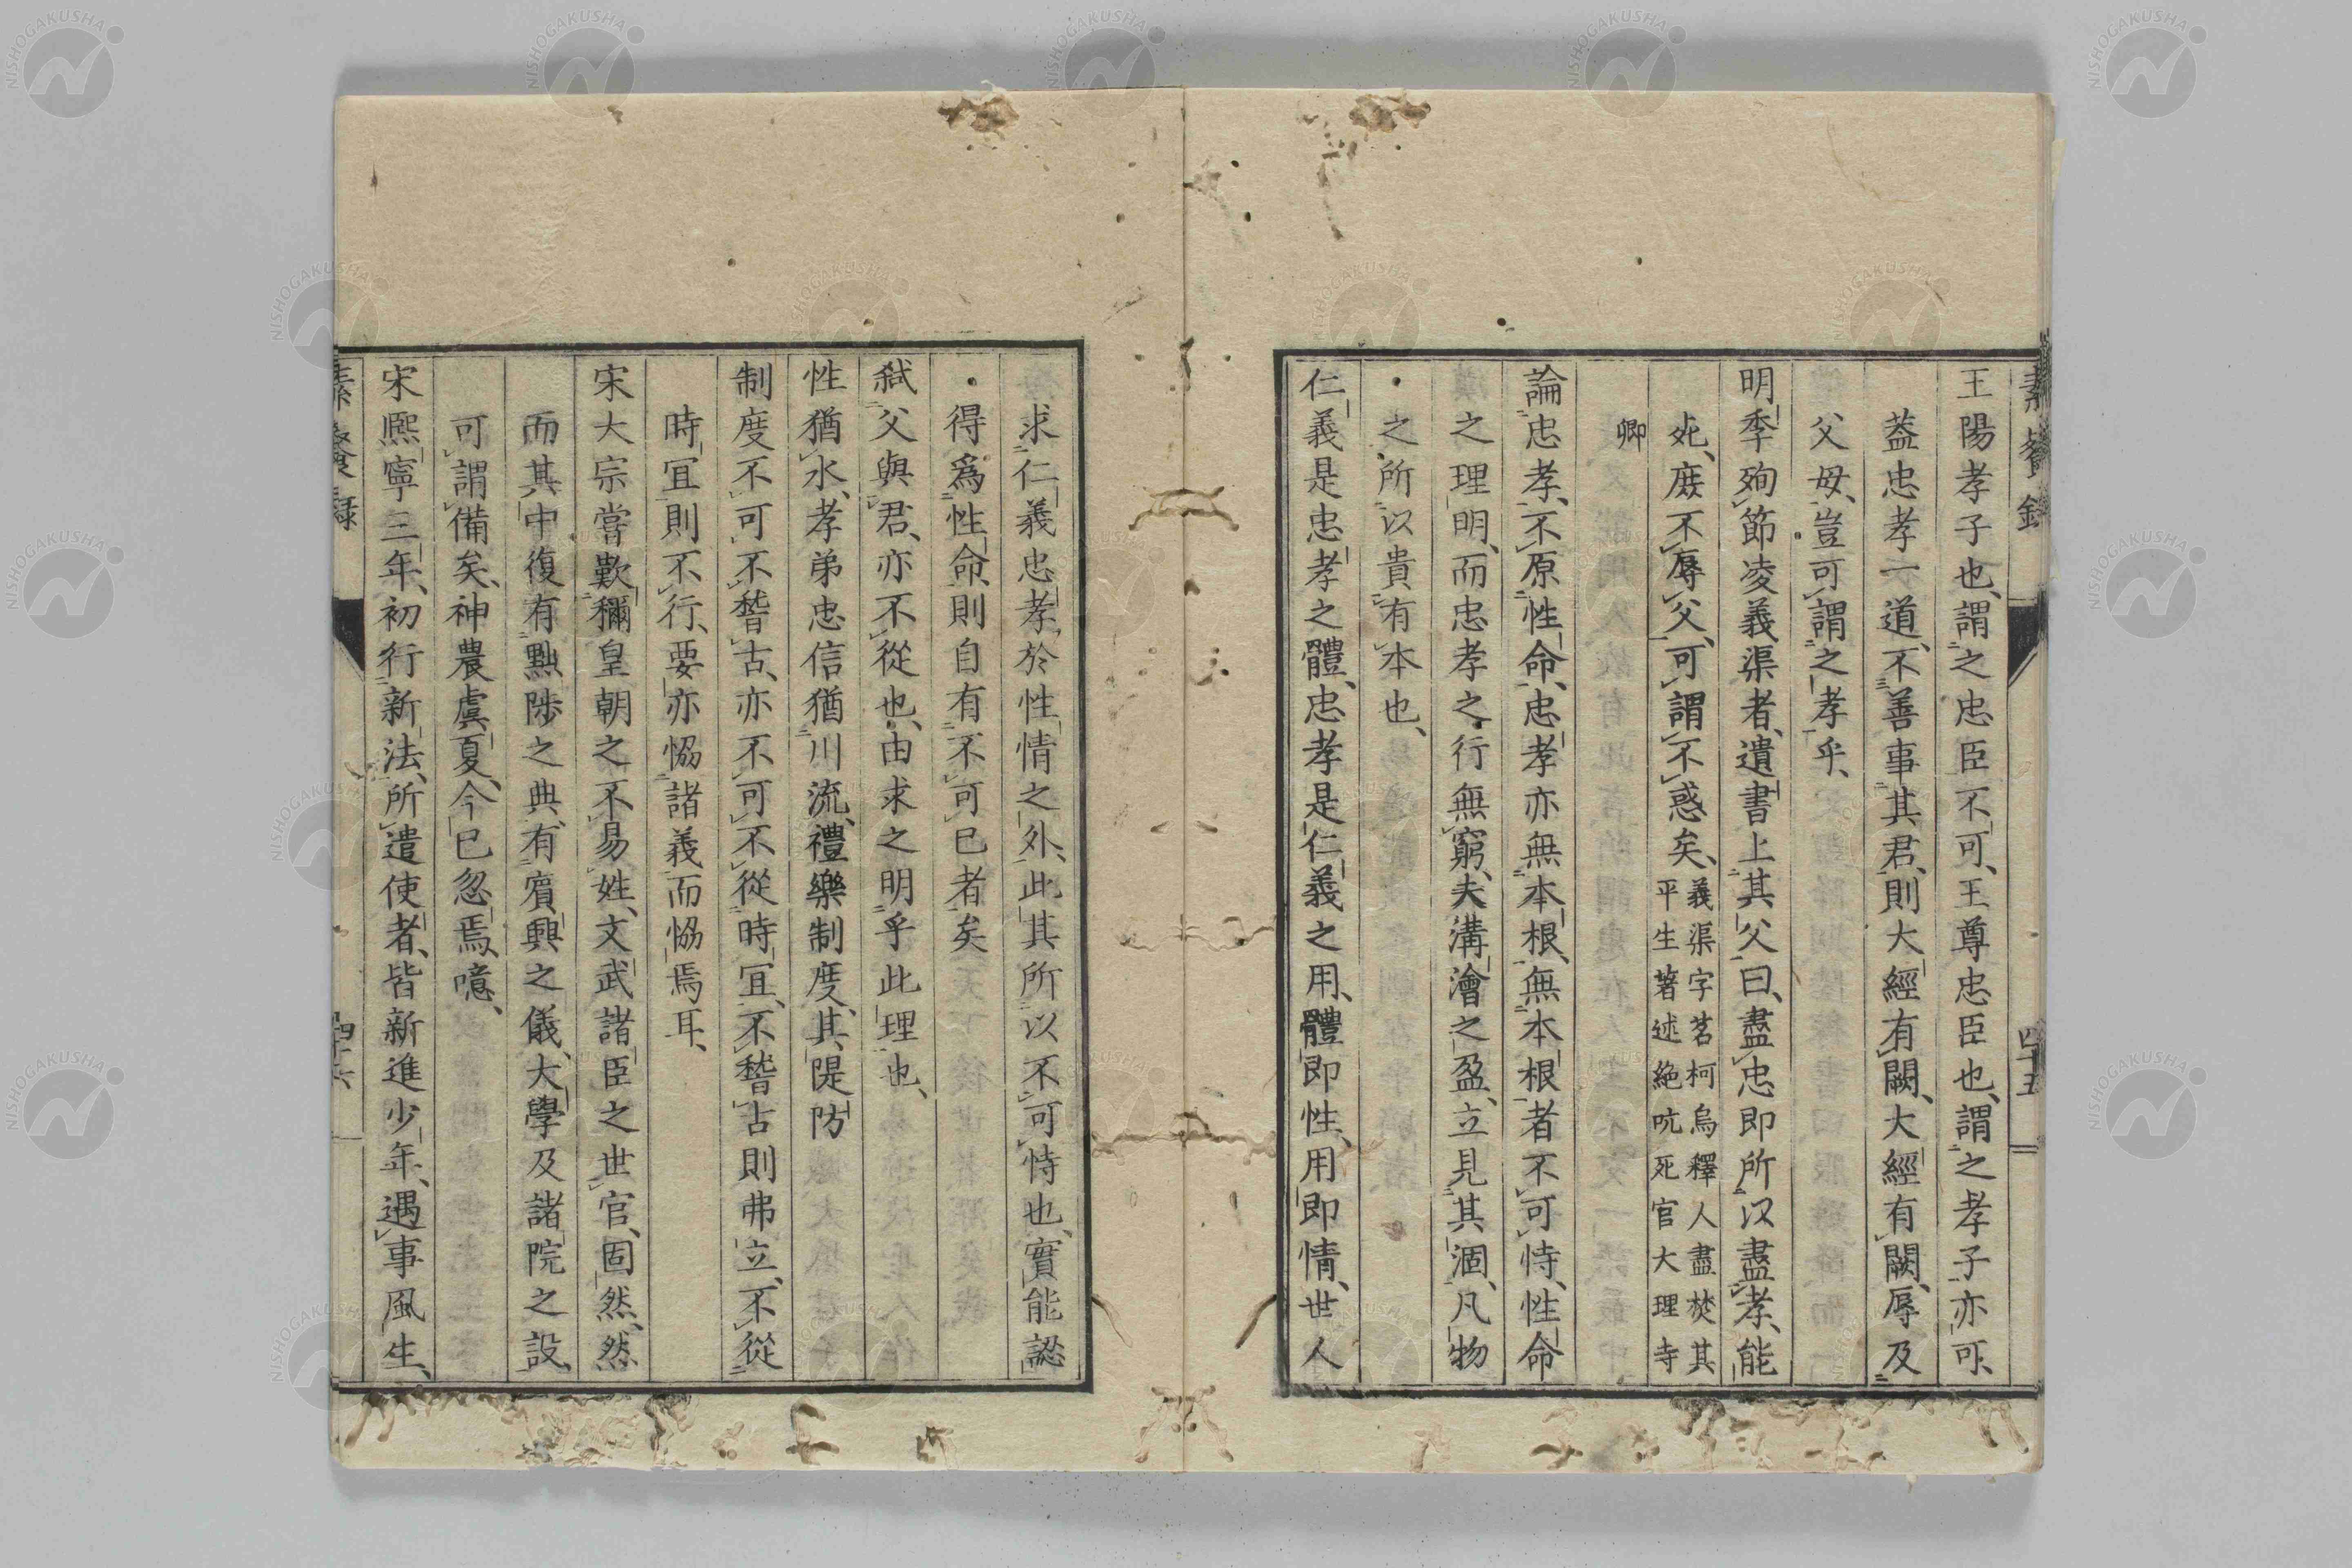 素餐錄
四十五
王陽孝子也、謂之忠臣不可、王尊忠臣也、謂之孝子亦可、
葢忠孝一道、不善事其君、則大經有闕、大經有闕、辱及
父母、豈可謂之孝乎、
明季殉節凌義渠者、遺書上其父曰、盡忠即所以盡孝、能
死、庶不辱父、可謂不惑矣、義渠字茗柯烏釋人盡焚其
平生著述絶吭死官大理寺
卿
論忠孝、不原性命、忠孝亦無本根、無本根者不可恃、性命
之理明、而忠孝之行無窮、夫溝澮之盈、立見其涸、凡物
之所以貴有本也、
仁義是忠孝之體、忠孝是仁義之用、體即性、用即情、世人
求仁義忠孝於性情之外、此其所以不可恃也、實能認
得爲性命、則自有不可已者矣
弒父與君、亦不從也、由求之明乎此理也、
性猶水、孝弟忠信猶川流、禮樂制度、其隄防
制度不可不稽古、亦不可不從時宜、不稽古則弗立、不從
時宜則不行、要亦恊諸義而恊焉耳、
宋大宗嘗歎稱皇朝之不易姓、文武諸臣之世官、固然、然
而其中復有黜陟之典、有賓興之儀、大學及諸院之設、
可謂備矣、神農虞夏、今已忽焉、噫、
宋熙寧三年、初行新法、所遣使者、皆新進少年、遇事風生、
素餐録
四十六